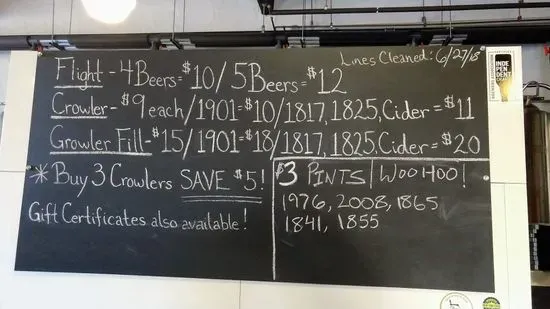 Lines Cleaned: 6/27/18
Flight - 4 Beers = $10 / 5 Beers = $12
Crowler - $9 each / 1901 = $10 / 1817, 1825, Cider = $11
Growler Fill - $15 / 1901 = $18 / 1817, 1825. Cider = $20
* Buy 3 Crowlers SAVE $5!
Gift Certificates also available!
$3 PINTS | WOO HOO!
1976, 2008, 1865
1841, 1855
INDE
PEN
DENT